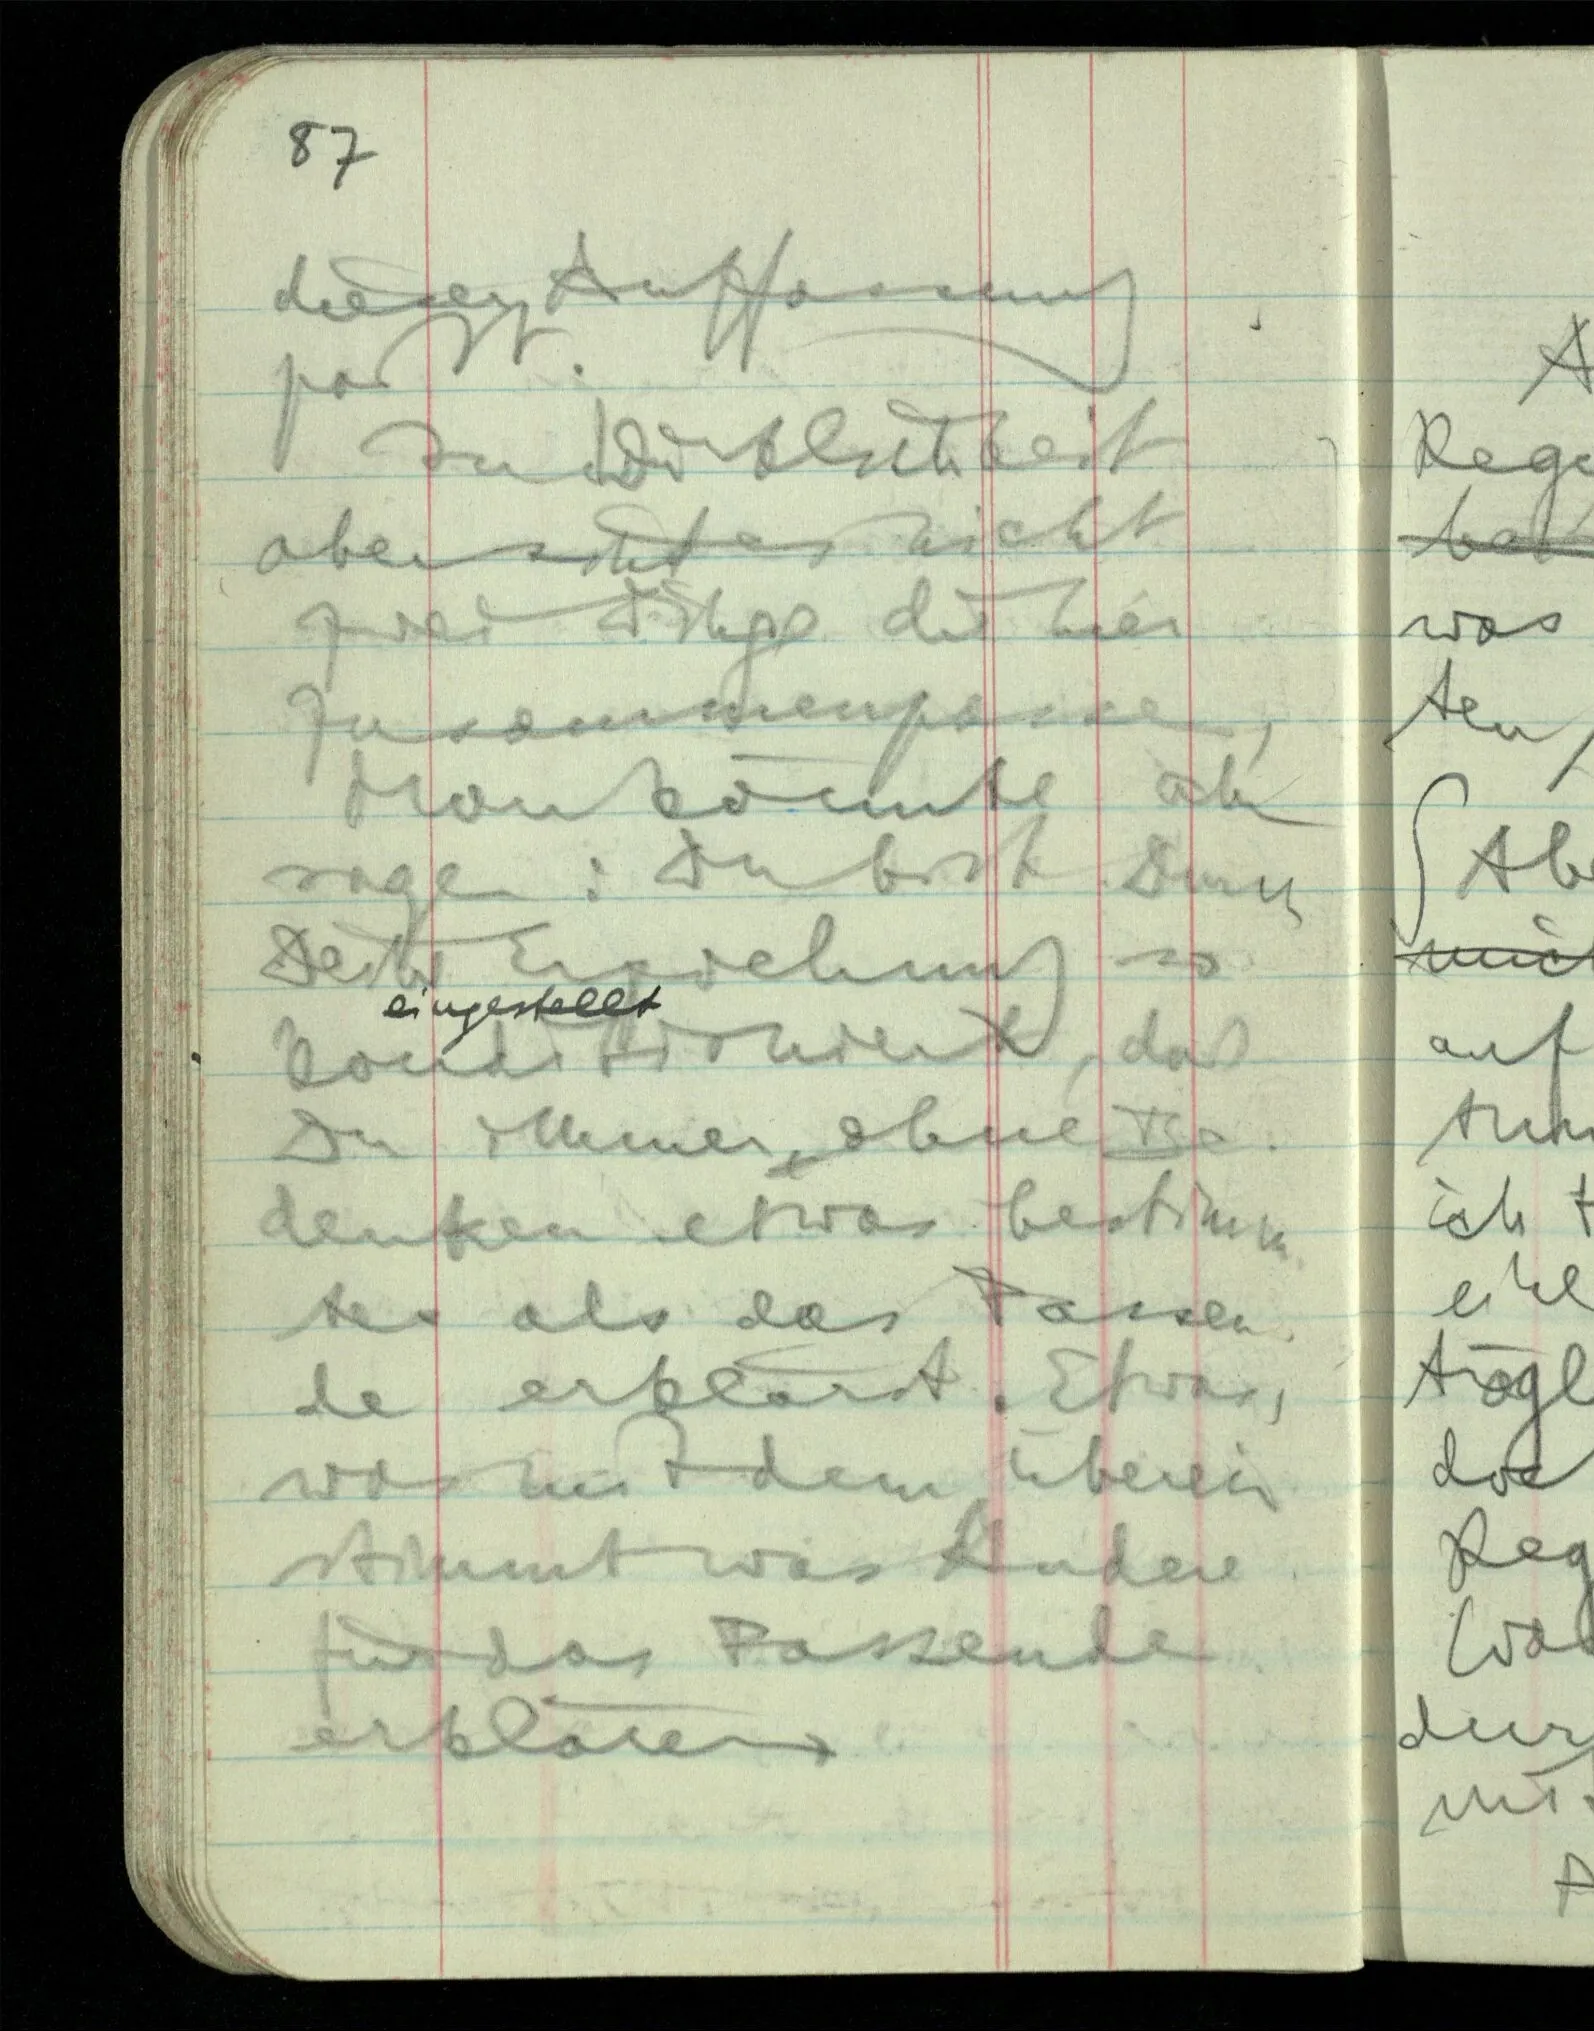 87
dieser Auffassung
paßt.
In Wirklichkeit
aber sind es nicht
zwei Dinge die hier
zusammenpassen,
Man könnte aber
sagen: Du bist Durch
Deine Erziehung so
eingestellt
konditioniert, daß
Du immer, ohne Be-
denken etwas bestimm-
tes als das Passen-
de erklärst. Etwas,
was mit dem überein
stimmt was Andere
für das Passende
erklären.
A
Rege
was
ten
Abe
auf
ich
eine
trägl
Reg